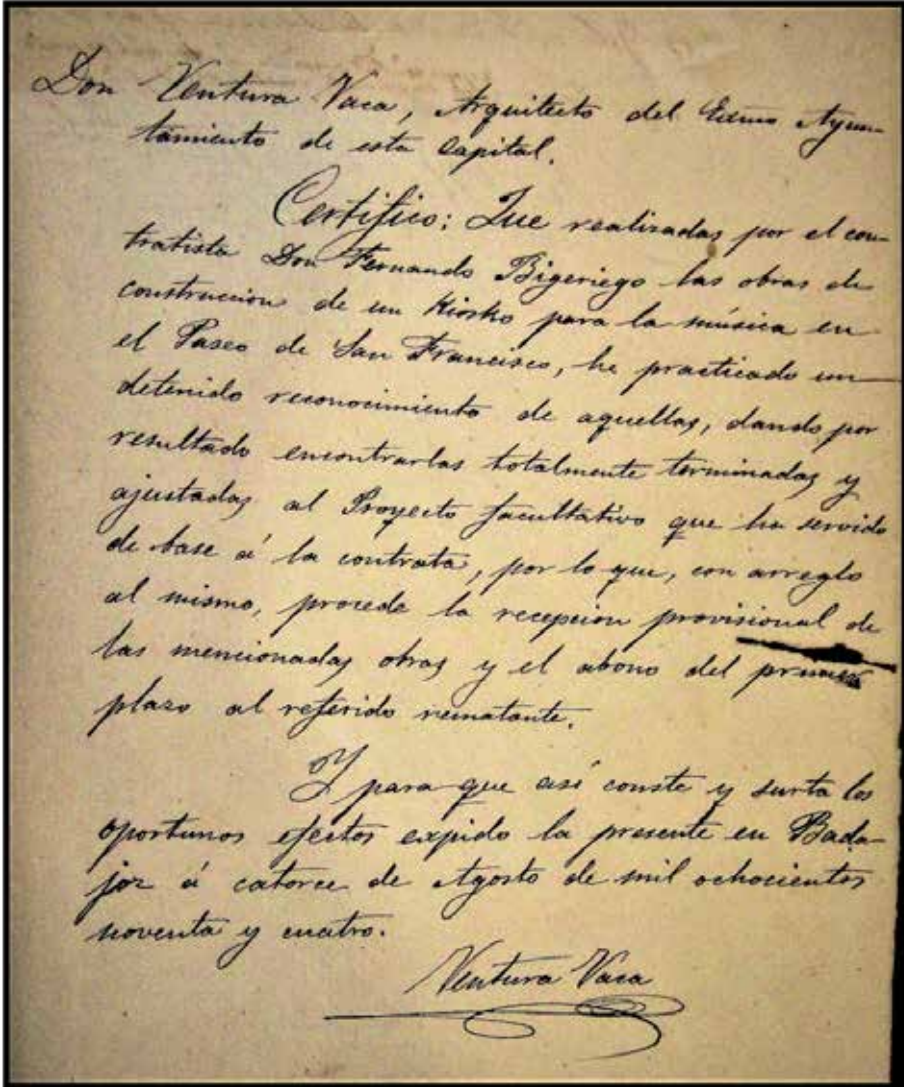 Don Ventura Vaca, Arquitecto del Exmo Ayun-
tamiento de esta Capital.
Certifico: Que realizadas por el con-
tratista Don Fernando Bigeriego las obras de
construccion de un Kiosko para la música en
el Paseo de San Francisco, he practicado un
detenido reconocimiento de aquellas, dando por
resultado encontrarlas totalmente terminadas y
ajustadas al Proyecto facultativo que ha servido
de base á la contrata, por lo que, con arreglo
al mismo, procede la recepcion provisional de
las mencionadas obras y el abono del primer
plazo al referido rematante.
Y para que asi conste y surta los
oportunos efectos expido la presente en Bada-
joz á catorce de Agosto de mil ochocientos
noventa y cuatro.
Ventura Vaca